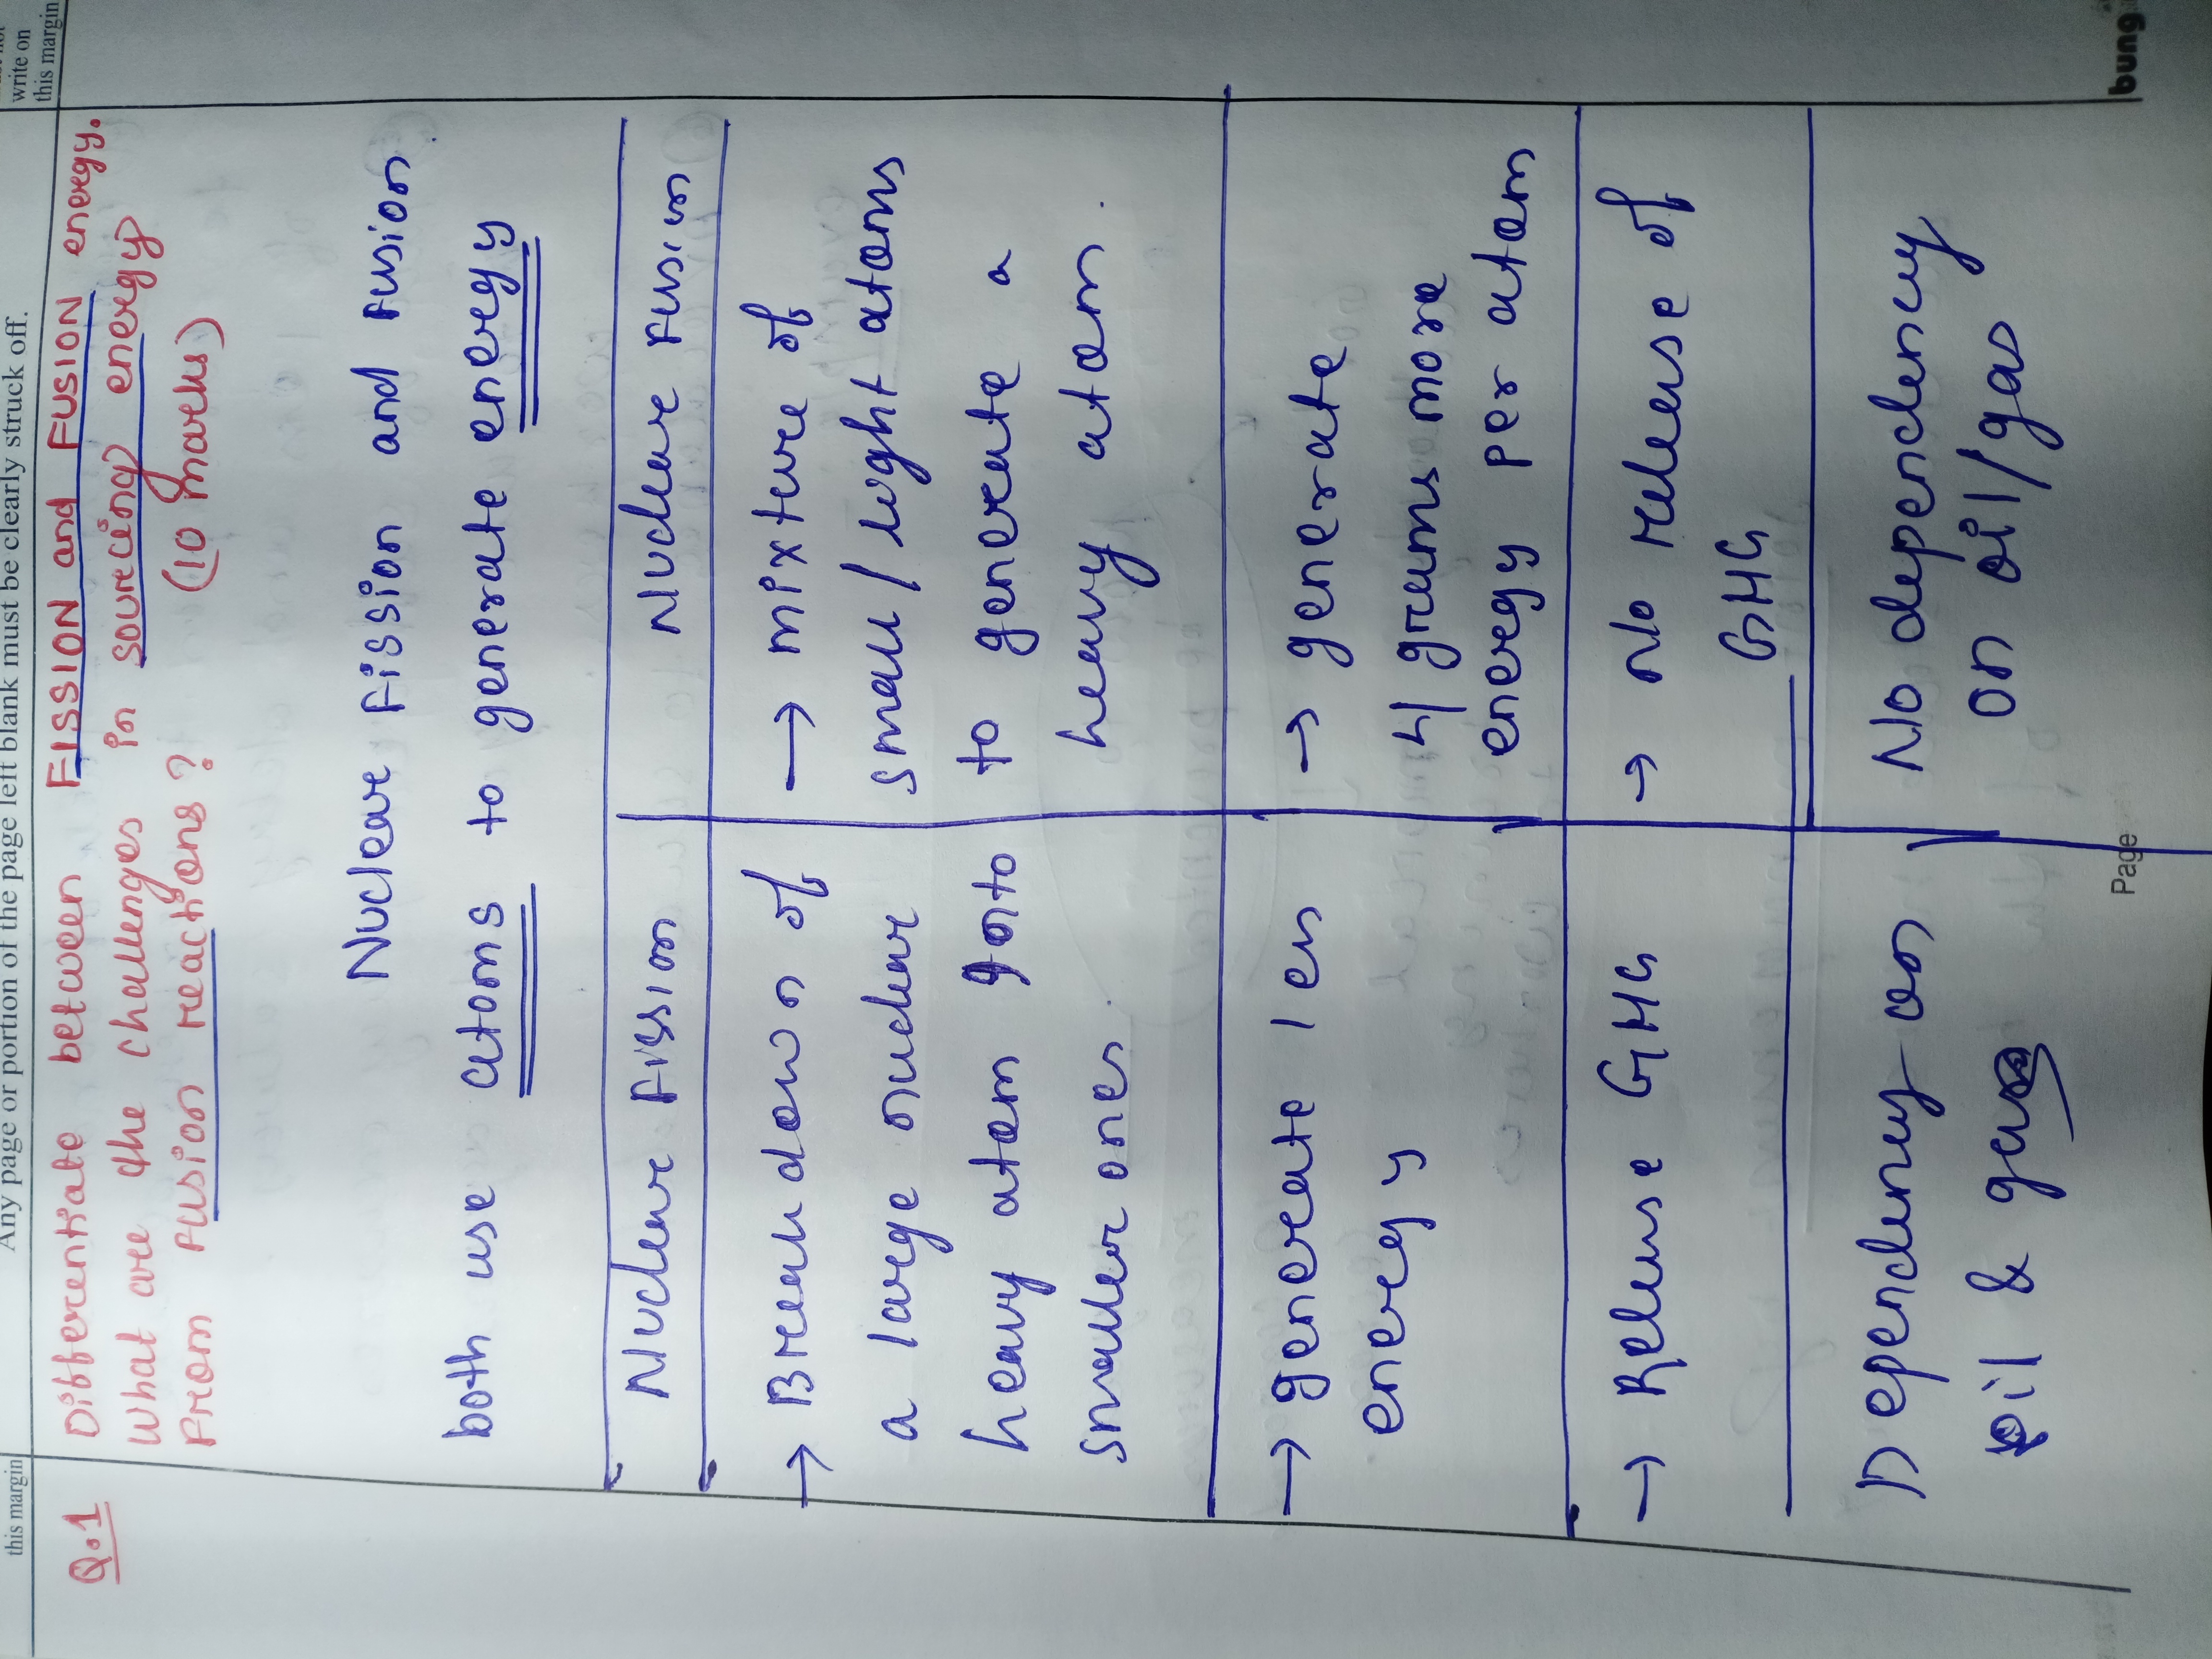 write on
this margin
this margin
Any page or portion of the page left blank must be clearly struck off.
Q.1 Differentiate between FISSION and FUSION energy.
What are the challenges in sourcing energy
from fusion reactions? (10 marks)
Nuclear fission and fusion
both use atoms to generate energy
Nuclear fission
→ Break down of
a large nuclear
heavy atom into
smaller ones.
→ generate les
energy
→ Release GHG
Dependency on
oil & gas
Nuclear fusion
→ mixture of
small / light atoms
to generate a
heavy atom.
→ generate
4/ grams more
energy per atom
→ No release of
GHG
No dependency
on oil/gas
Page